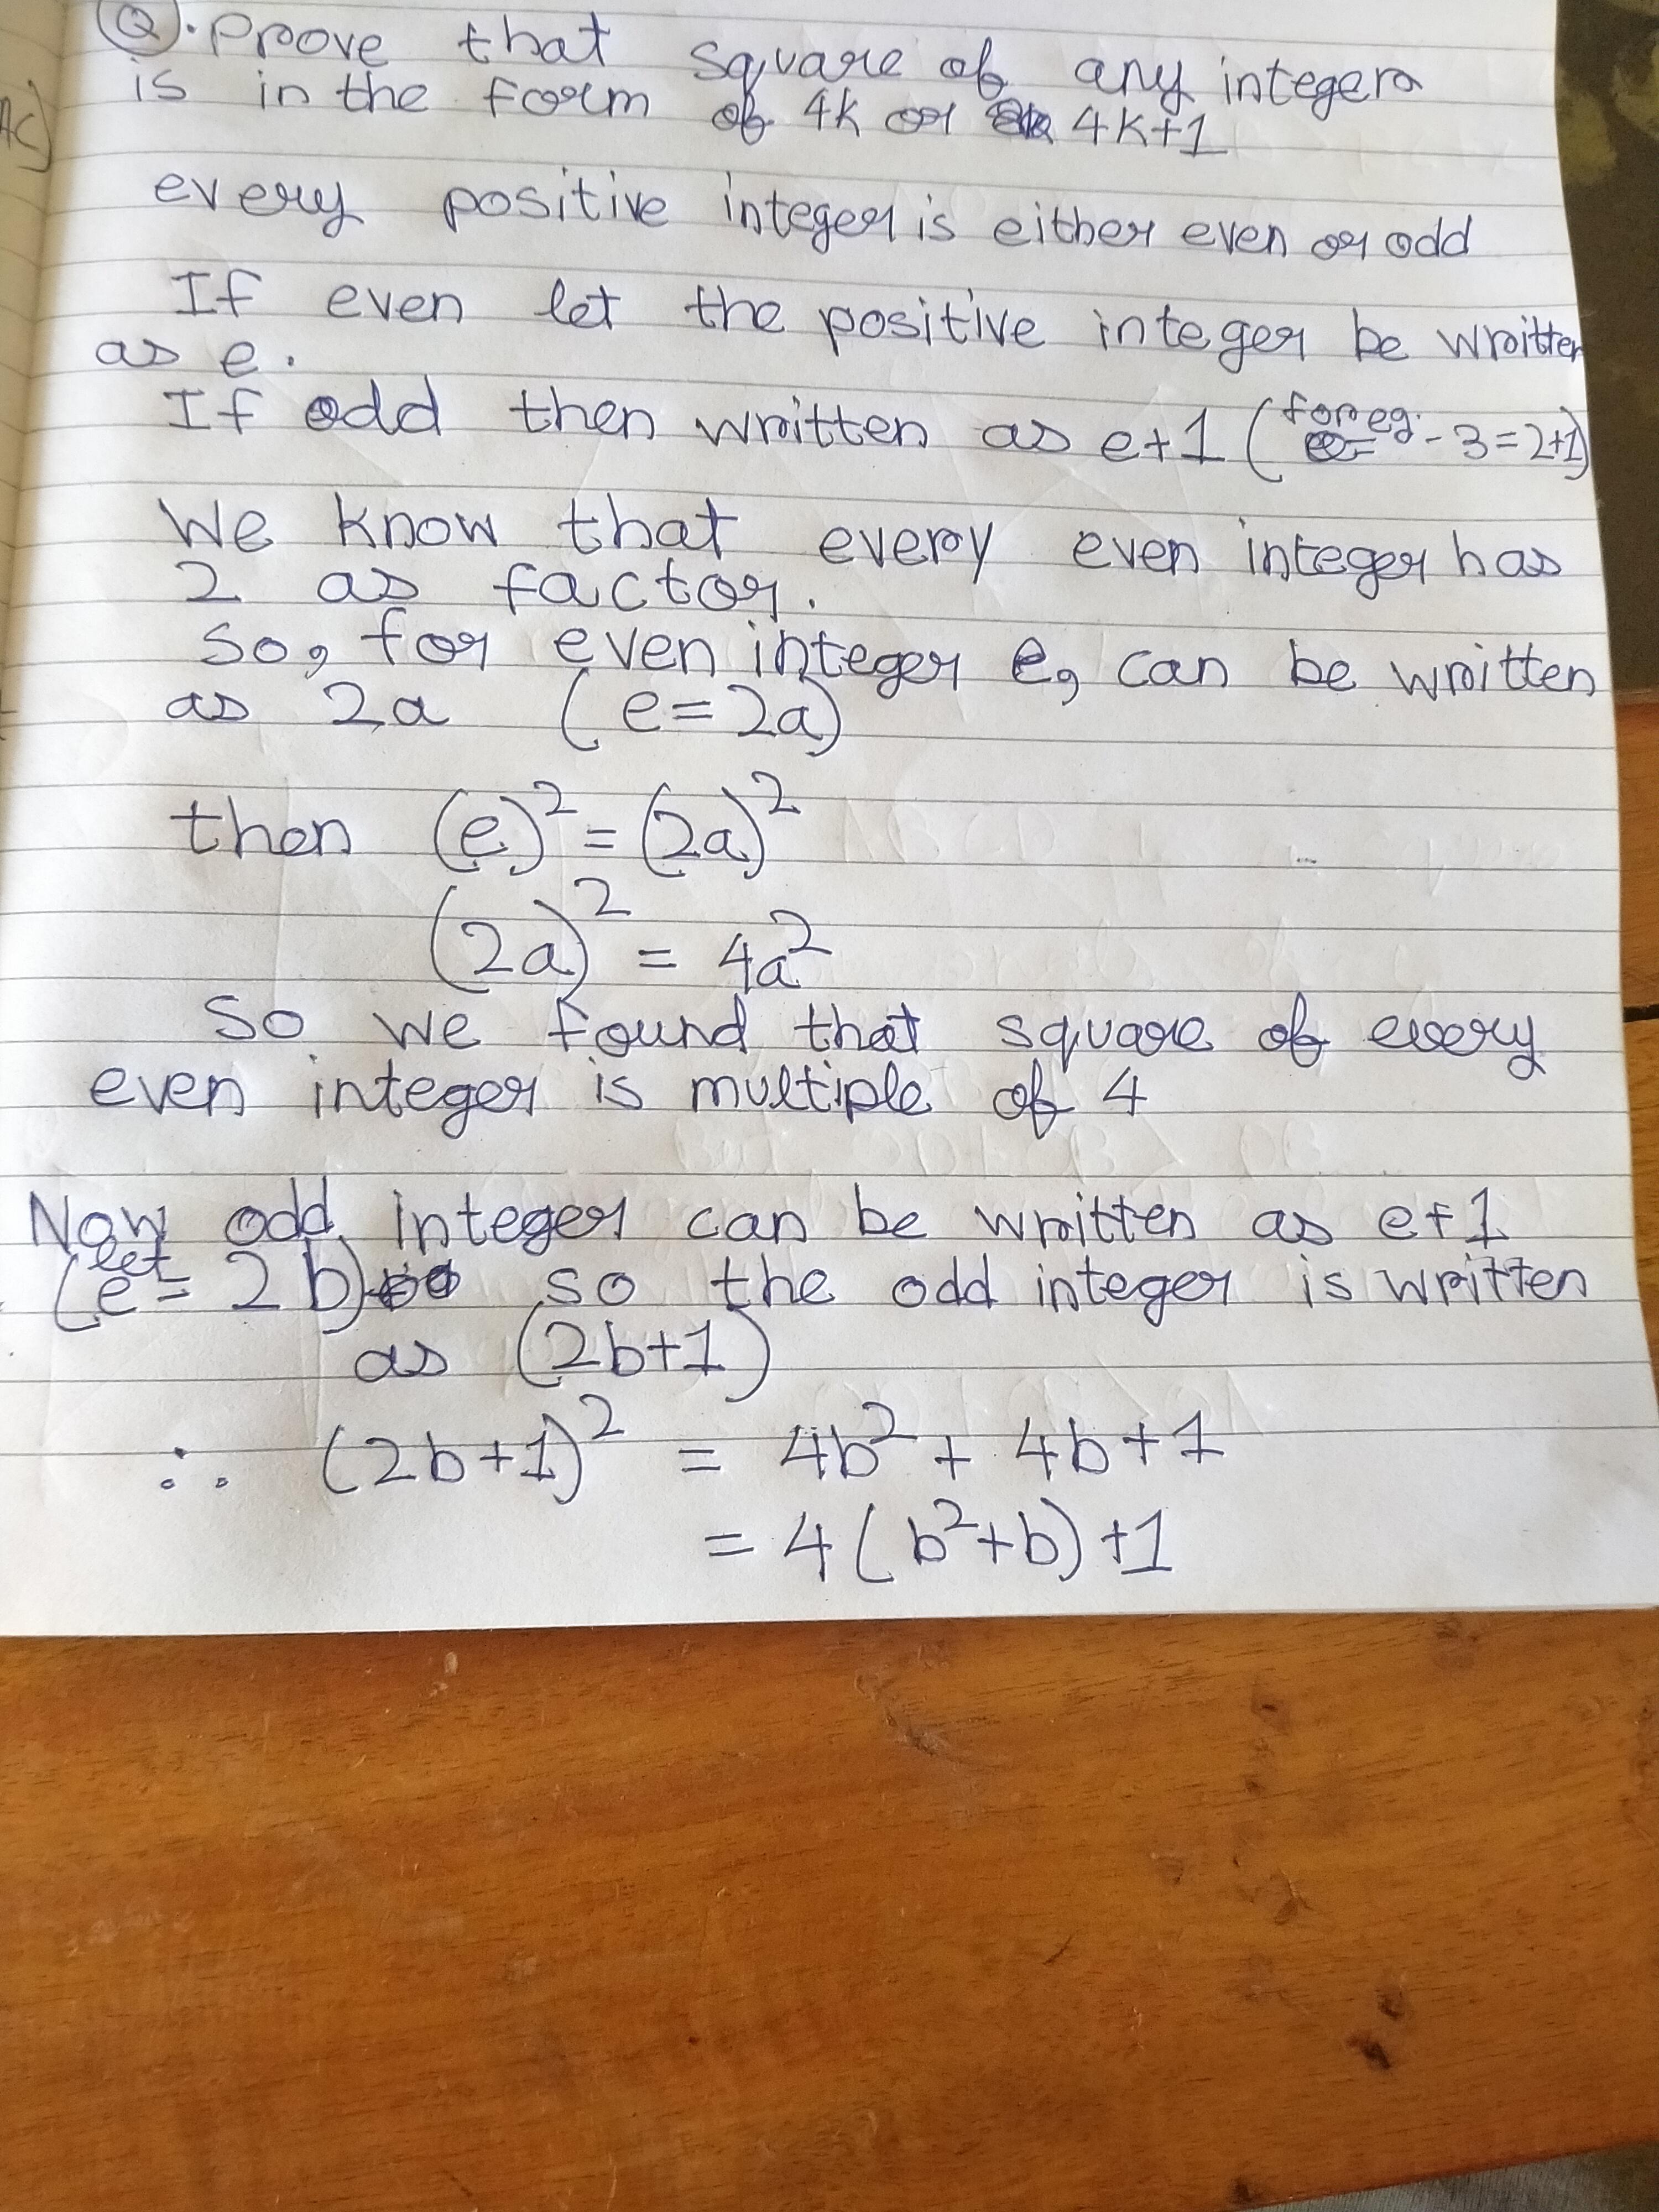 Q. Prove that square of any integer
is in the form of 4k or 4k+1
every positive integer is either even or odd
If even let the positive integer be written
as e.
If odd then written as e+1 (for eg. - 3=2+1)
We know that every even integer has
2 as factor.
So, for even integer e, can be written
as 2a (e=2a)
then (e)² = (2a)²
(2a)² = 4a²
So we found that square of every
even integer is multiple of 4
Now odd integer can be written as e+1
(let e = 2b) so the odd integer is written
as (2b+1)
∴ (2b+1)² = 4b² + 4b+1
= 4(b²+b)+1